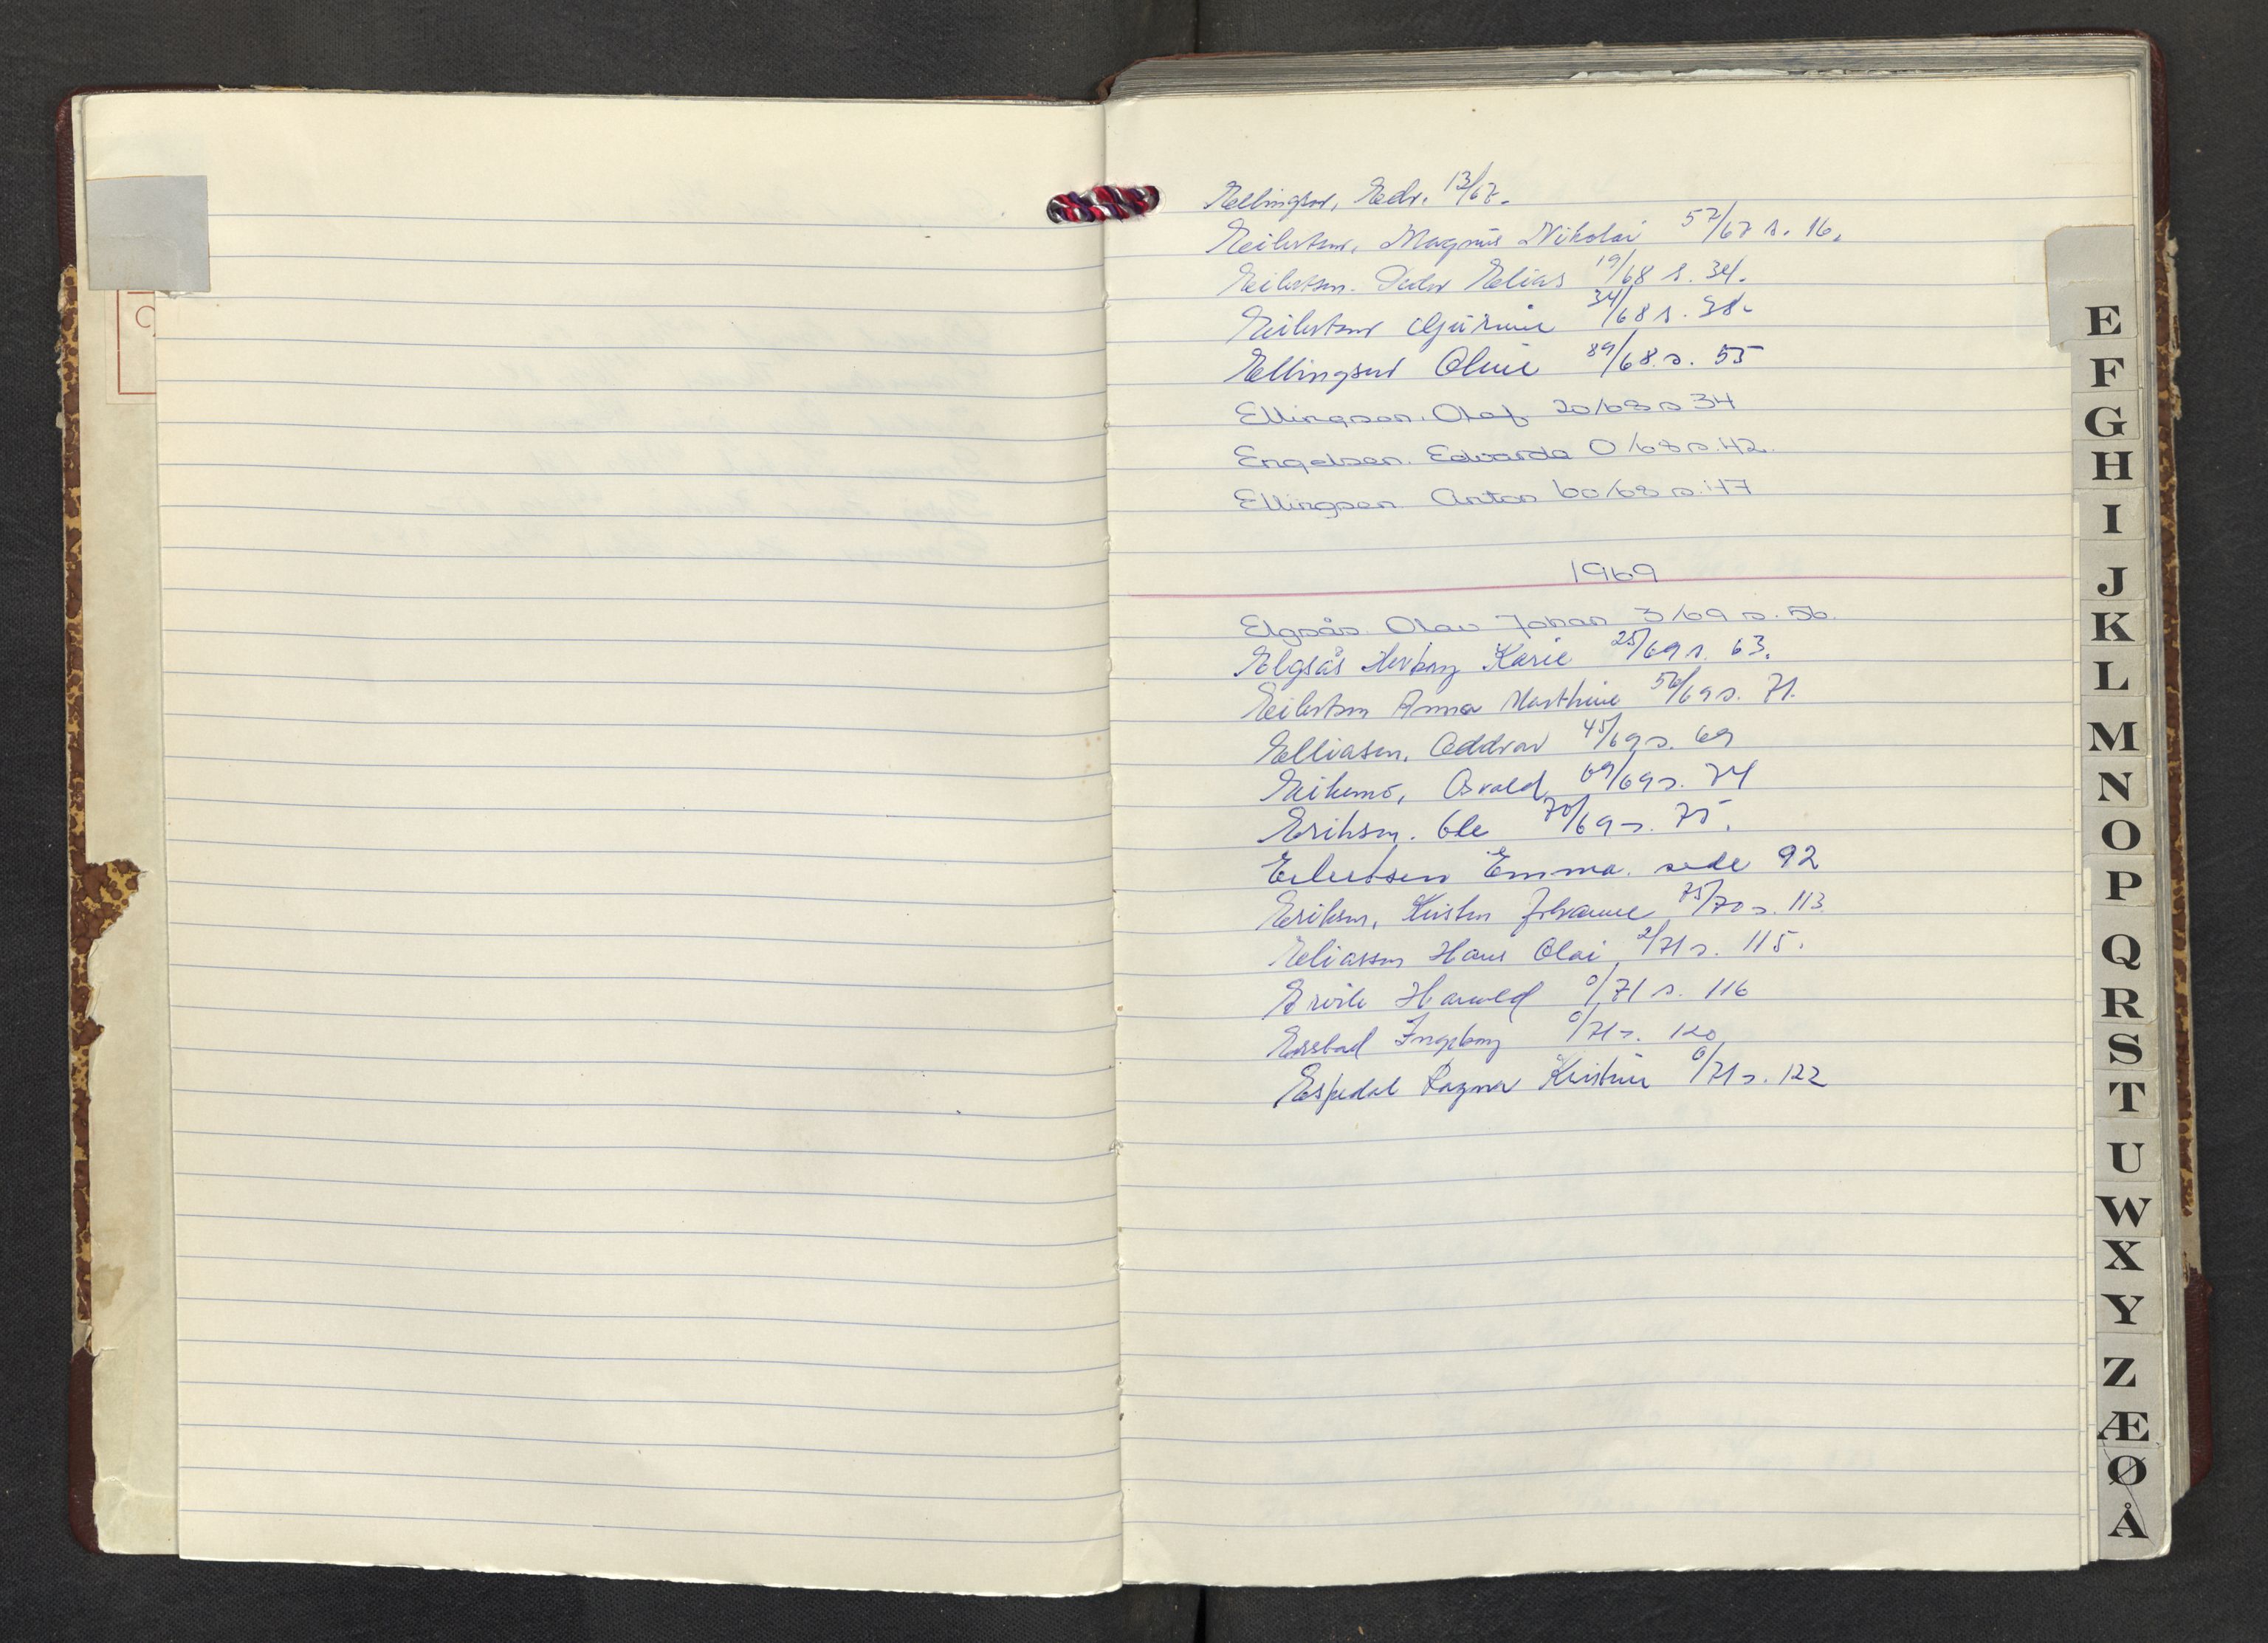 Ellingsen, Edv. 13/67.
Eilertsen, Magnus Nikolai 57/67 s. 16.
Eilertsen. Peder Elias 19/68 s. 34.
Eilertsen Gurine 34/68 s. 38.
Ellingsen Oline 89/68 s. 55
Ellingsen. Olaf 20/68 s 34
Engelsen. Edvarda 0/68 s. 42.
Ellingsen Anton 60/68 s. 47
1969
Elgsås Olav Johan 3/69 s. 56.
Elgsås Herborg Karie 25/69 s. 63.
Eilertsen Anna Marthine 56/69 s. 71.
Elliasen, Oddvar 45/69 s. 69
Eikemo, Osvald 69/69 s. 74
Eriksen. Ole 70/69 s. 75.
Eilertsen Emma. side 92
Eriksen, Kirsten Johanne 75/70 s. 113
Eliassen Hans Olai 2/71 s. 115.
Ervik Harald 0/71 s. 116
Ingeborg 0/71 s. 120
Espedal Ragna Kristine 0/71 s. 122
E
F
G
H
I
J
K
L
M
N
O
P
Q
R
S
T
U
W
X
Y
Z
Æ
Ø
Å